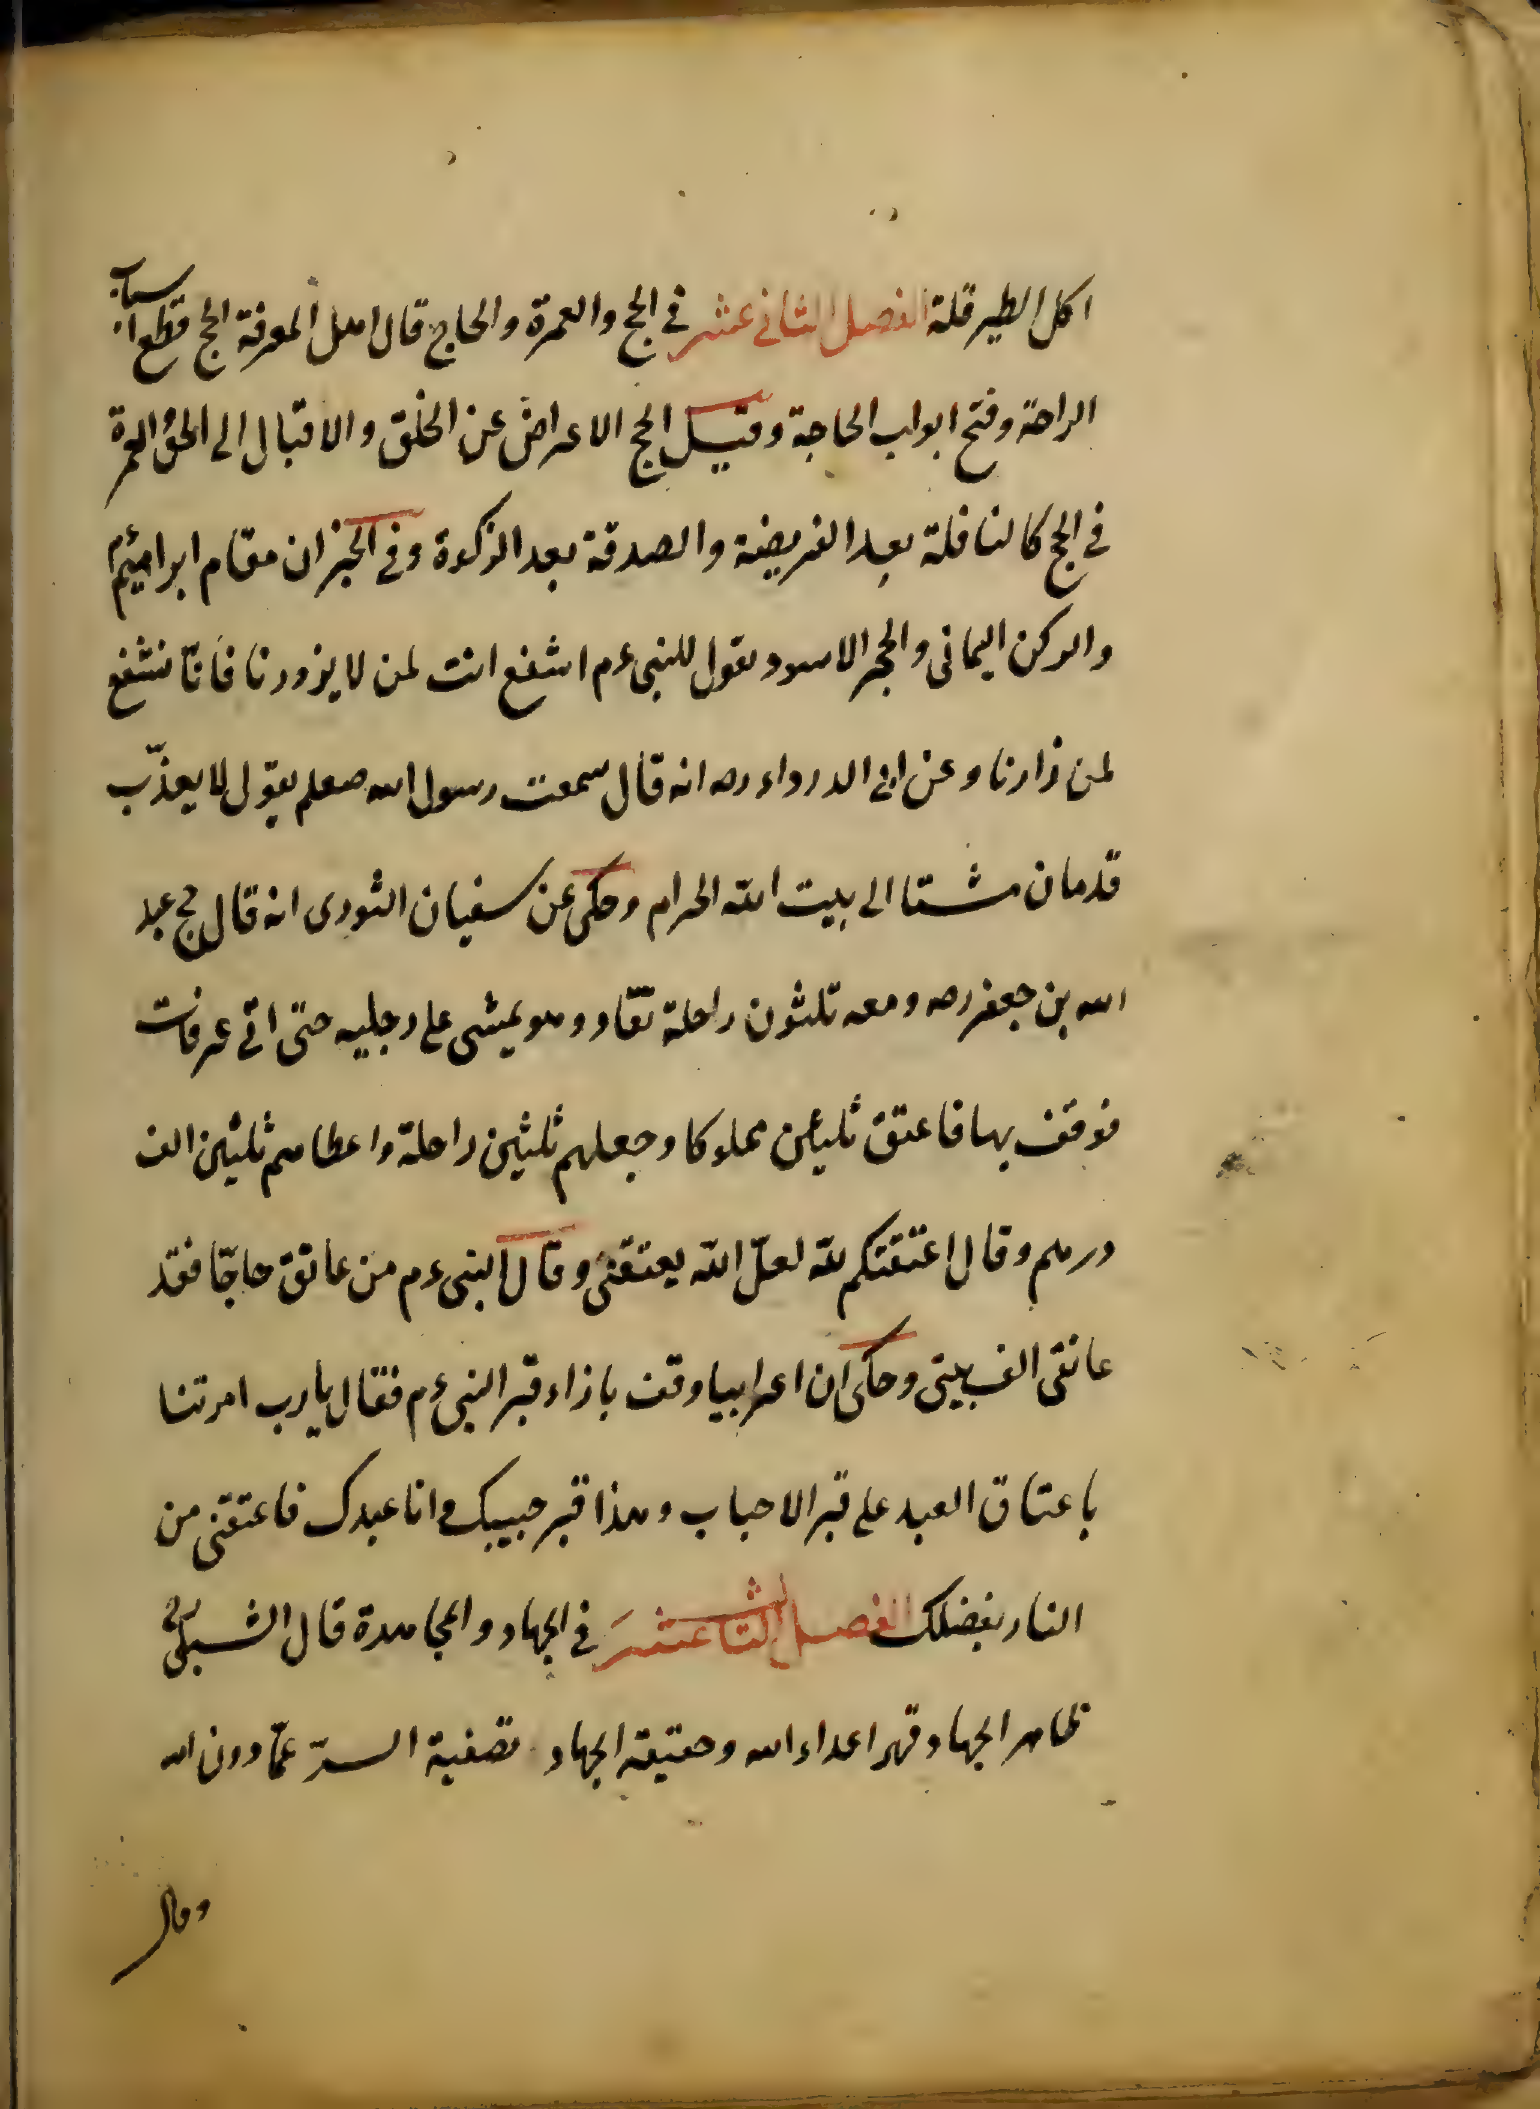 اكل الطير قلة الفصل الثانى عشر فى الحج والعمرة والحاج قال اهل المعرفة الحج قطع اسباب
الراحة وفتح ابواب الحاجة وقيل الحج الاعراض عن الخلق والاقبال الى الحق العمرة
فى الحج كالنافلة بعد الفريضة والصدقة بعد الزكوة وفى الخبر ان مقام ابراهيم ءم
والركن اليمانى والحجر الاسود يقول للنبى ءم اشفع انت لمن لا يزورنا فانّا نشفع
لمن زارنا وعن ابى الدرداء رضه انه قال سمعت رسول الله صعلم يقول لا يعذّب
قدمان مشتا الى بيت الله الحرام وحكى عن سفيان الثورى انه قال حج عبد
الله بن جعفر رضه ومعه ثلثون راحلة تقاد وهو يمشى على رجليه حتى اتى عرفات
فوقف بها فاعتق ثلثين مملوكا وجعلهم ثلثين راحلة واعطاهم ثلثين الف
درهم وقال اعتقتكم لله لعلّ الله يعتقنى وقال النبى ءم من عانق حاجّا فقد
عانقى الف بيتى وحكى ان اعرابيا وقف بازاء قبر النبى ءم فقال يا رب امرتنا
باعتاق العبد على قبر الاحباب وهذا قبر حبيبك وانا عبدك فاعتقنى من
النار بفضلك الفصل الثالث عشر فى الجهاد والمجاهدة قال الشبلى
ظاهر الجهاد قهر اعداء الله وحقيقة الجهاد تصفية السرّ عمّا دون الله
وقال